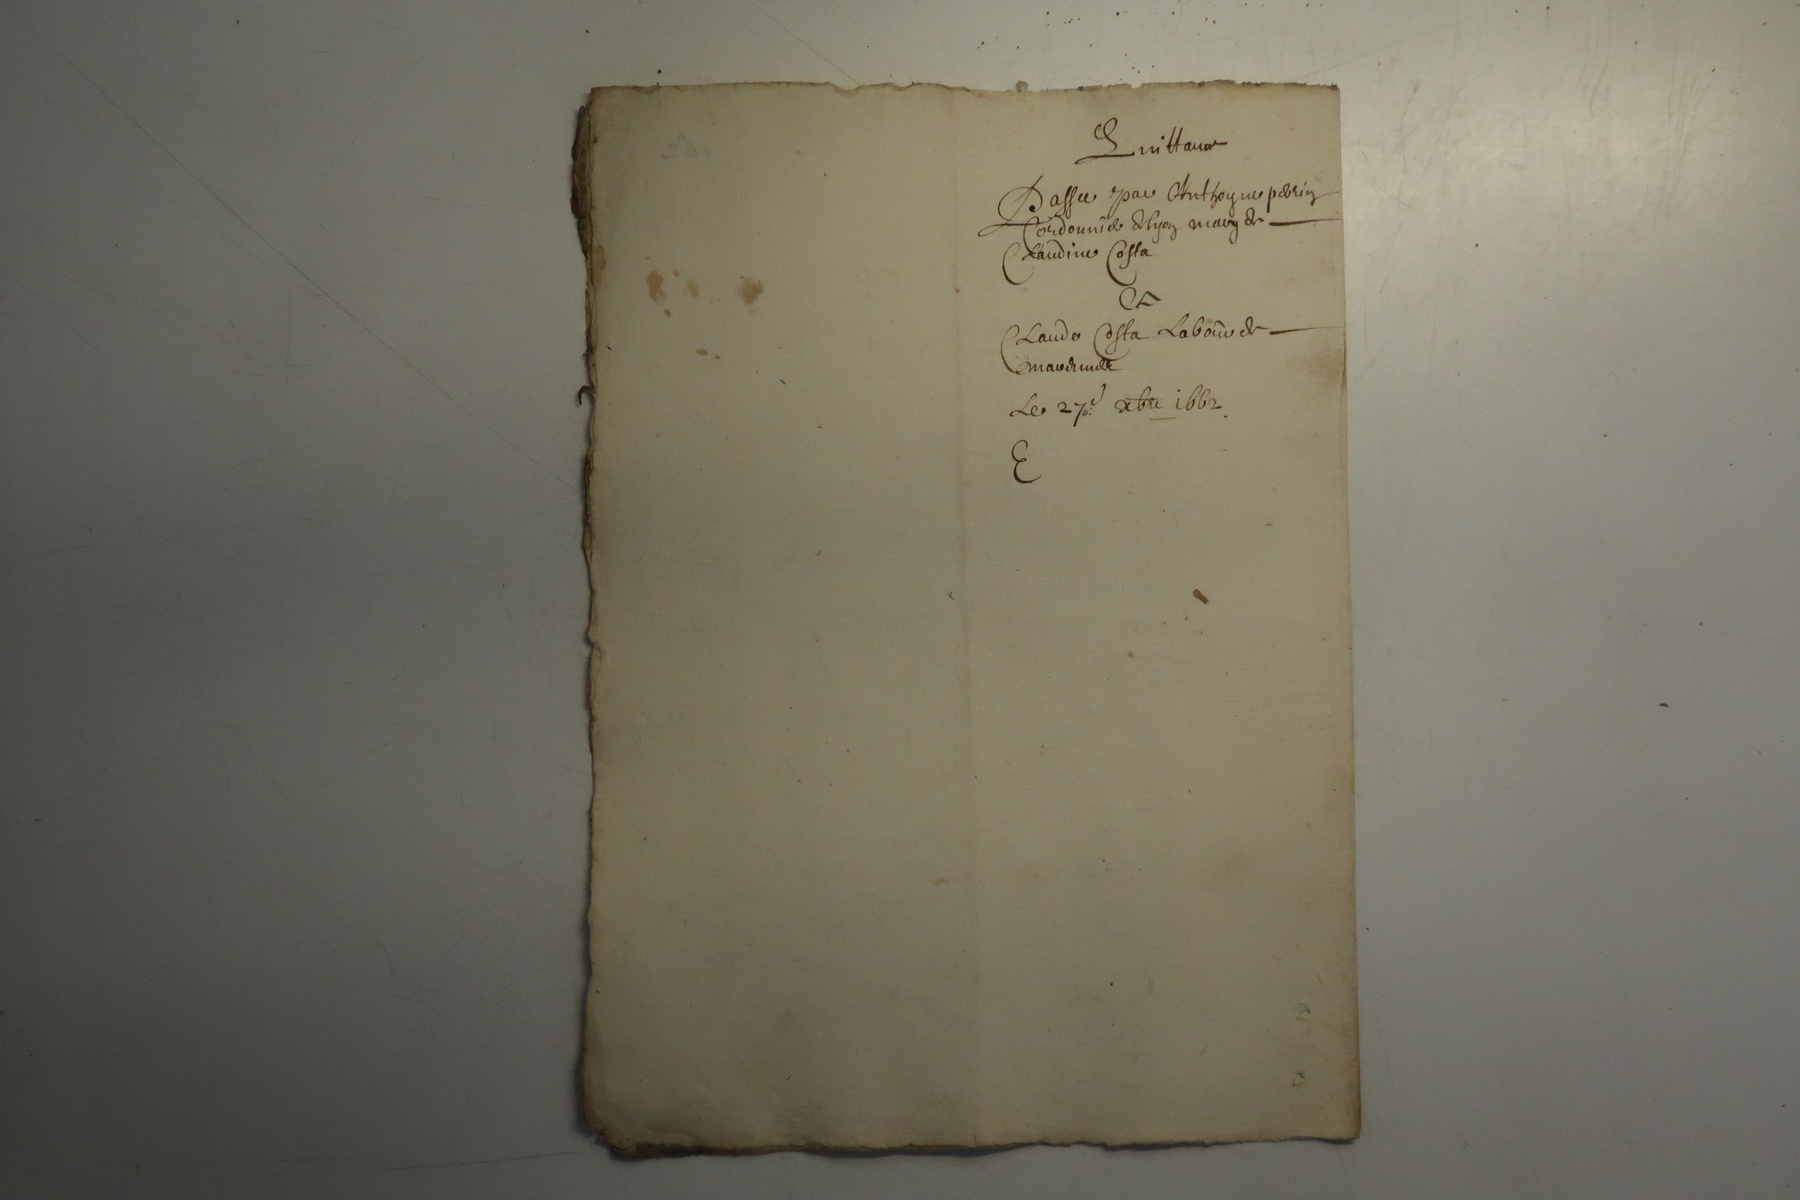 Quittance
Passee par Anthoyne perrin
Cordonnier de lyon mary de
Claudine Costa
Et
Claude Costa Labour de
Le 27e xbre 1662.
E